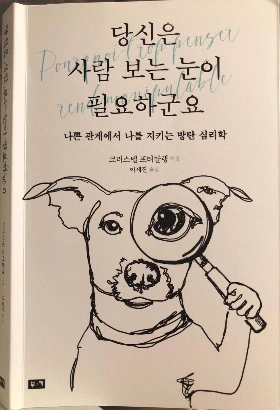 당신은
사람 보는 눈이
필요하군요
Pourquoi trop penser
rend manipulable
나쁜 관계에서 나를 지키는 방탄 심리학
크리스텔 프티콜랭 지음
이세진 옮김
부·키